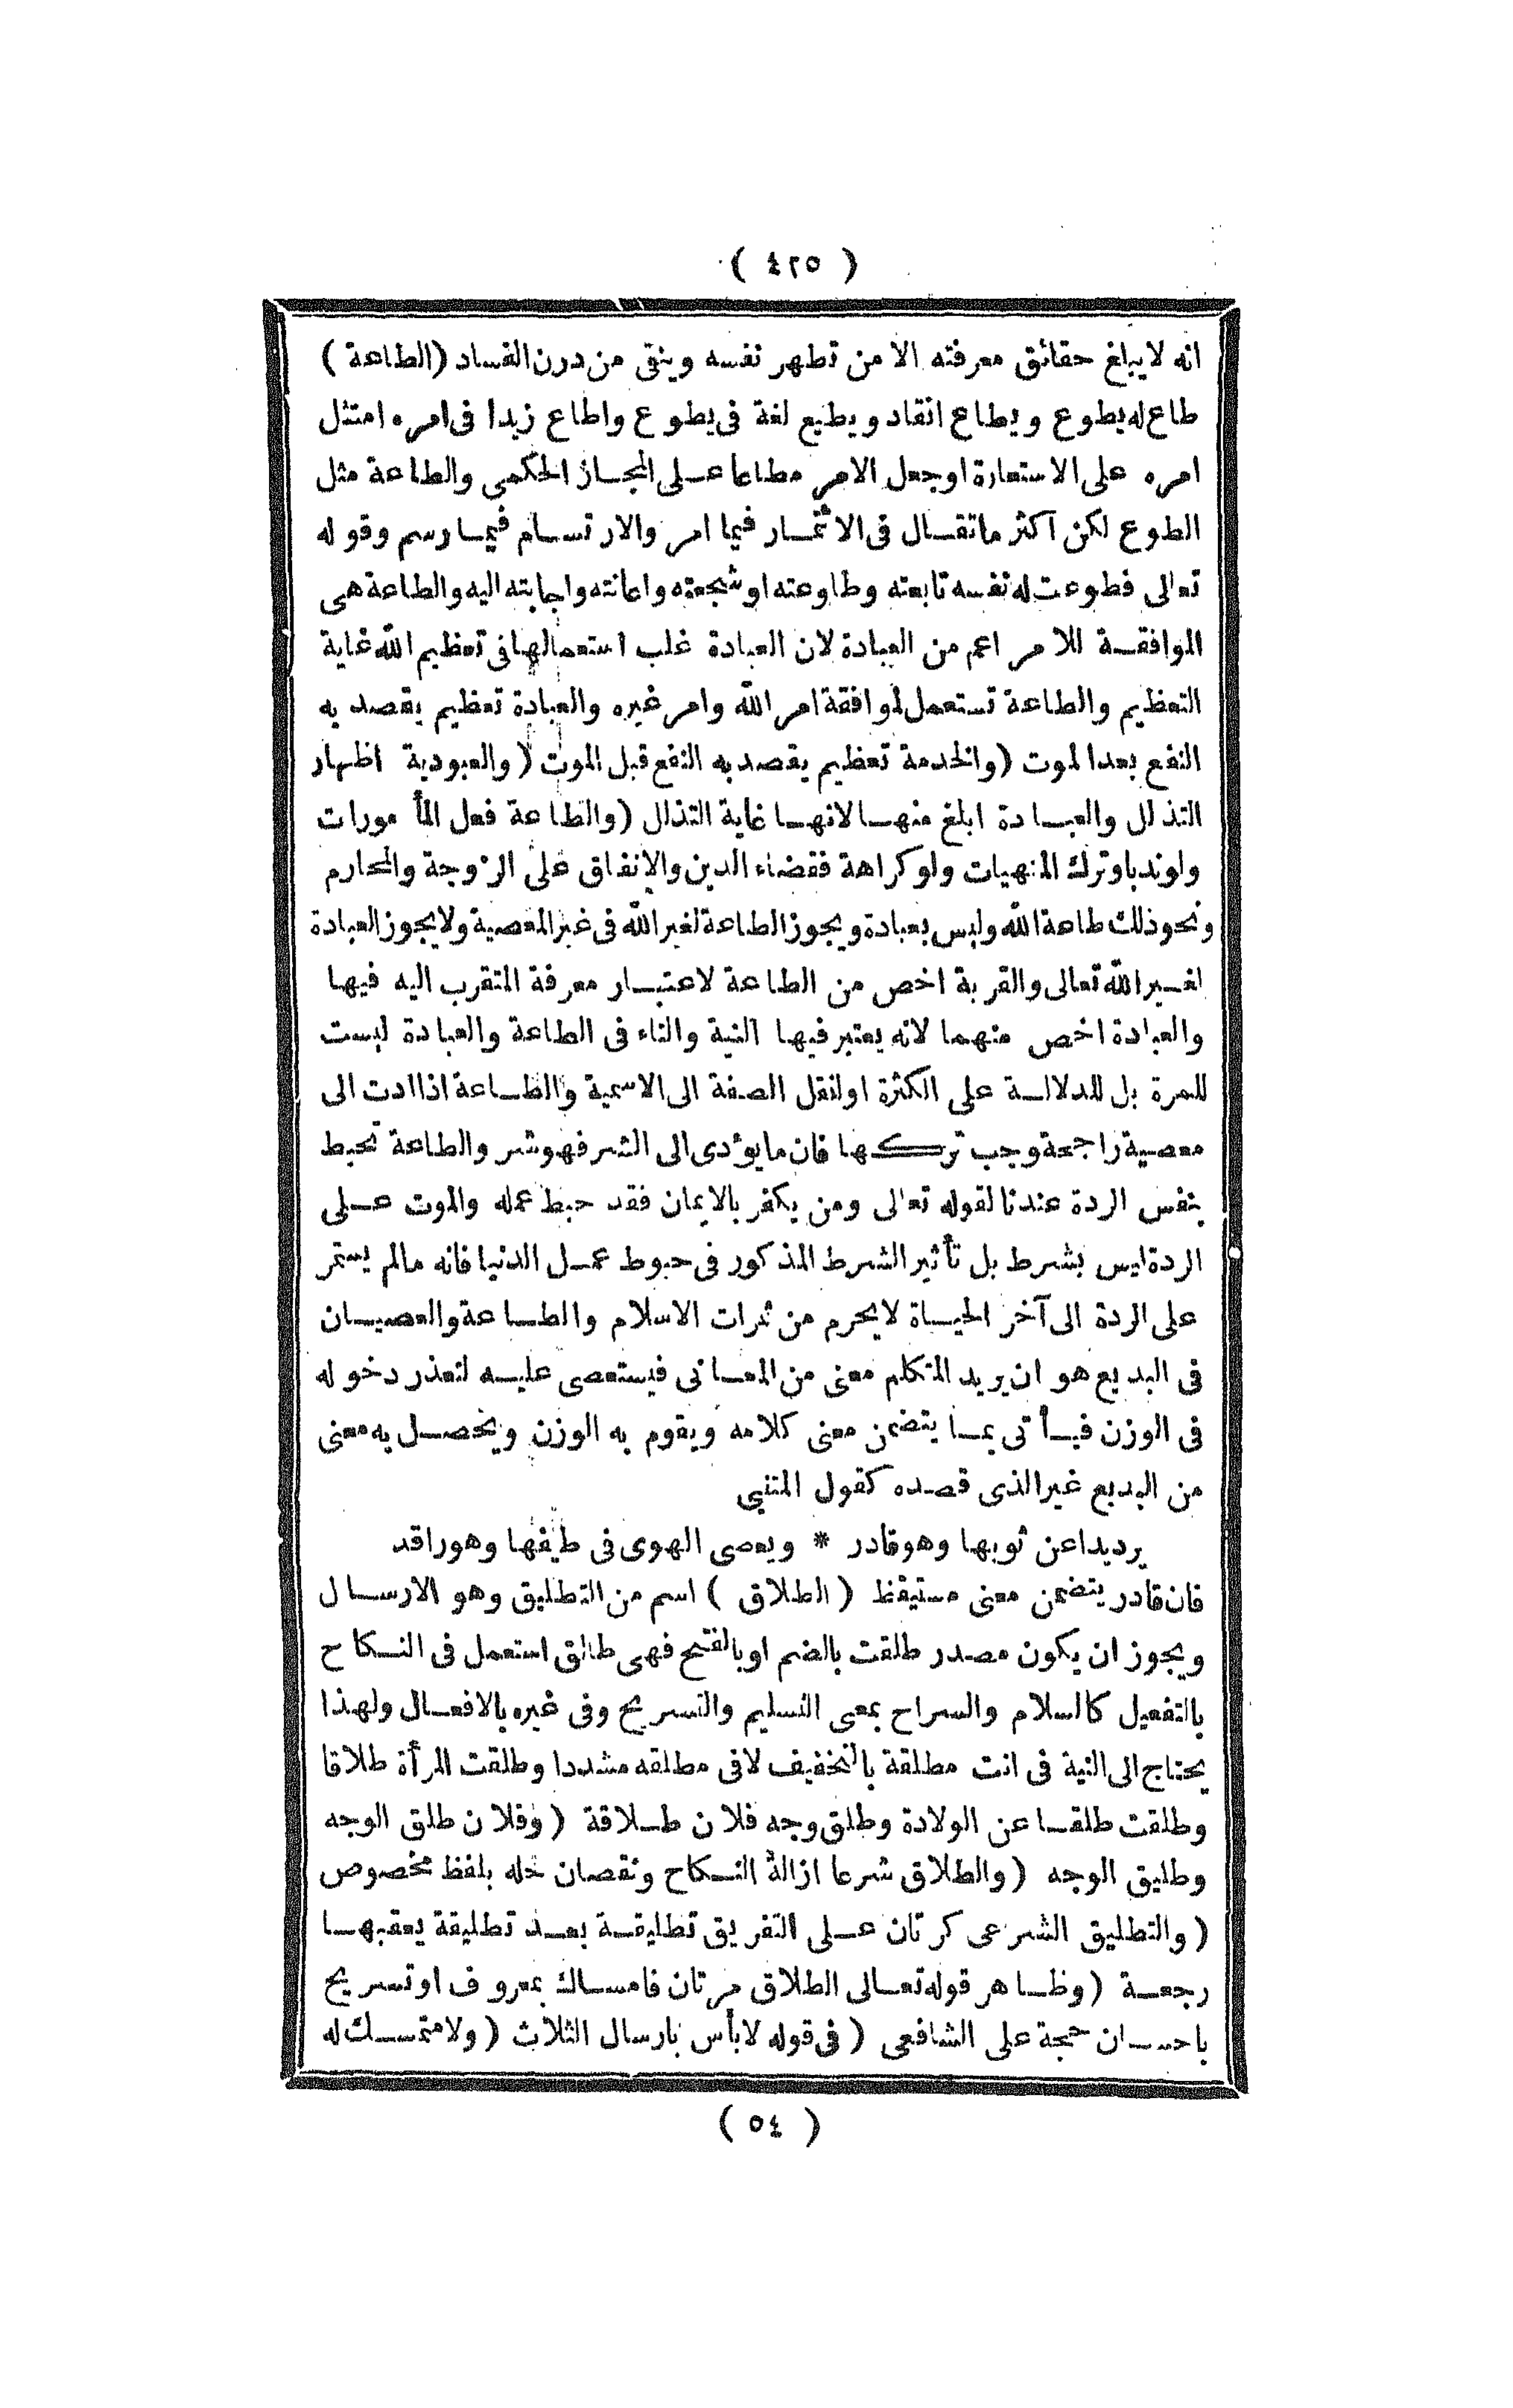 ( ٤٢٥ )
انه لايبلغ حقائق معرفته الا من تطهر نفسه وينقى من درن الفساد (الطاعة )
طاع له يطوع ويطاع انقاد ويطيع لغة فى يطوع واطاع زيدا فى امره امتثل
امره على الاستعارة اوجعل الامر مطاعا على المجاز الحكمى والطاعة مثل
الطوع لكن اكثر ماتقال فى الائتمار فيما امر والارتسام فيما رسم وقوله
تعالى فطوعت له نفسه تابعته وطاوعته اوشجعته واعانته واجابته اليه والطاعة هى
الموافقة للامر اعم من العبادة لان العبادة غلب استعمالها فى تعظيم الله غاية
التعظيم والطاعة تستعمل لموافقة امر الله وامر غيره والعبادة تعظيم يقصد به
النفع بعد الموت (والخدمة تعظيم يقصد به النفع قبل الموت (والعبودية اظهار
التذلل والعبادة ابلغ منها لانها غاية التذلل (والطاعة فعل المأمورات
ولوندبا وترك المنهيات ولو كراهة فقضاء الدين والانفاق على الزوجة والمحارم
ونحو ذلك طاعة الله وليس بعبادة ويجوز الطاعة لغير الله فى غير المعصية ولايجوز العبادة
لغير الله تعالى والقربة اخص من الطاعة لاعتبار معرفة المتقرب اليه فيها
والعبادة اخص منهما لانه يعتبر فيها النية والتاء فى الطاعة والعبادة ليست
للمرة بل للدلالة على الكثرة اولنقل الصفة الى الاسمية والطاعة اذا ادت الى
معصية راجحة وجب تركها فان مايؤدى الى الشر فهو شر والطاعة تحبط
بنفس الردة عندنا لقوله تعالى ومن يكفر بالايمان فقد حبط عمله والموت على
الردة ليس بشرط بل تأثير الشرط المذكور فى حبوط عمل الدنيا فانه مالم يستمر
على الردة الى آخر الحياة لايحرم من ثمرات الاسلام والطاعة والعصيان
فى البديع هو ان يريد المتكلم معنى من المعانى فيستعصى عليه لتعذر دخوله
فى الوزن فيأتى بما يتضمن معنى كلامه ويقوم به الوزن ويحصل به معنى
من البديع غير الذى قصده كقول المتنبي
يرد يدا عن ثوبها وهو قادر * ويعصى الهوى فى طيفها وهو راقد
فان قادر يتضمن معنى مستيقظ ( الطلاق ) اسم من التطليق وهو الارسال
ويجوز ان يكون مصدر طلقت بالضم اوبالفتح فهى طالق استعمل فى النكاح
بالتفعيل كالسلام والسراح بمعى التسليم والتسريح وفى غيره بالافعال ولهذا
يحتاج الى النية فى انت مطلقة بالتخفيف لا فى مطلقه مشددا وطلقت المرأة طلاقا
وطلقت طلقا عن الولادة وطلق وجه فلان طلاقة (وفلان طلق الوجه
وطليق الوجه (والطلاق شرعا ازالة النكاح ونقصان حله بلفظ مخصوص
(والتطليق الشرعى كرتان على التفريق تطليقة بعد تطليقة يعقبها
رجعة (وظاهر قوله تعالى الطلاق مرتان فامساك بمعروف اوتسريح
باحسان حجة على الشافعى (فى قوله لابأس بارسال الثلاث (ولا متمسك له
( ٥٤ )